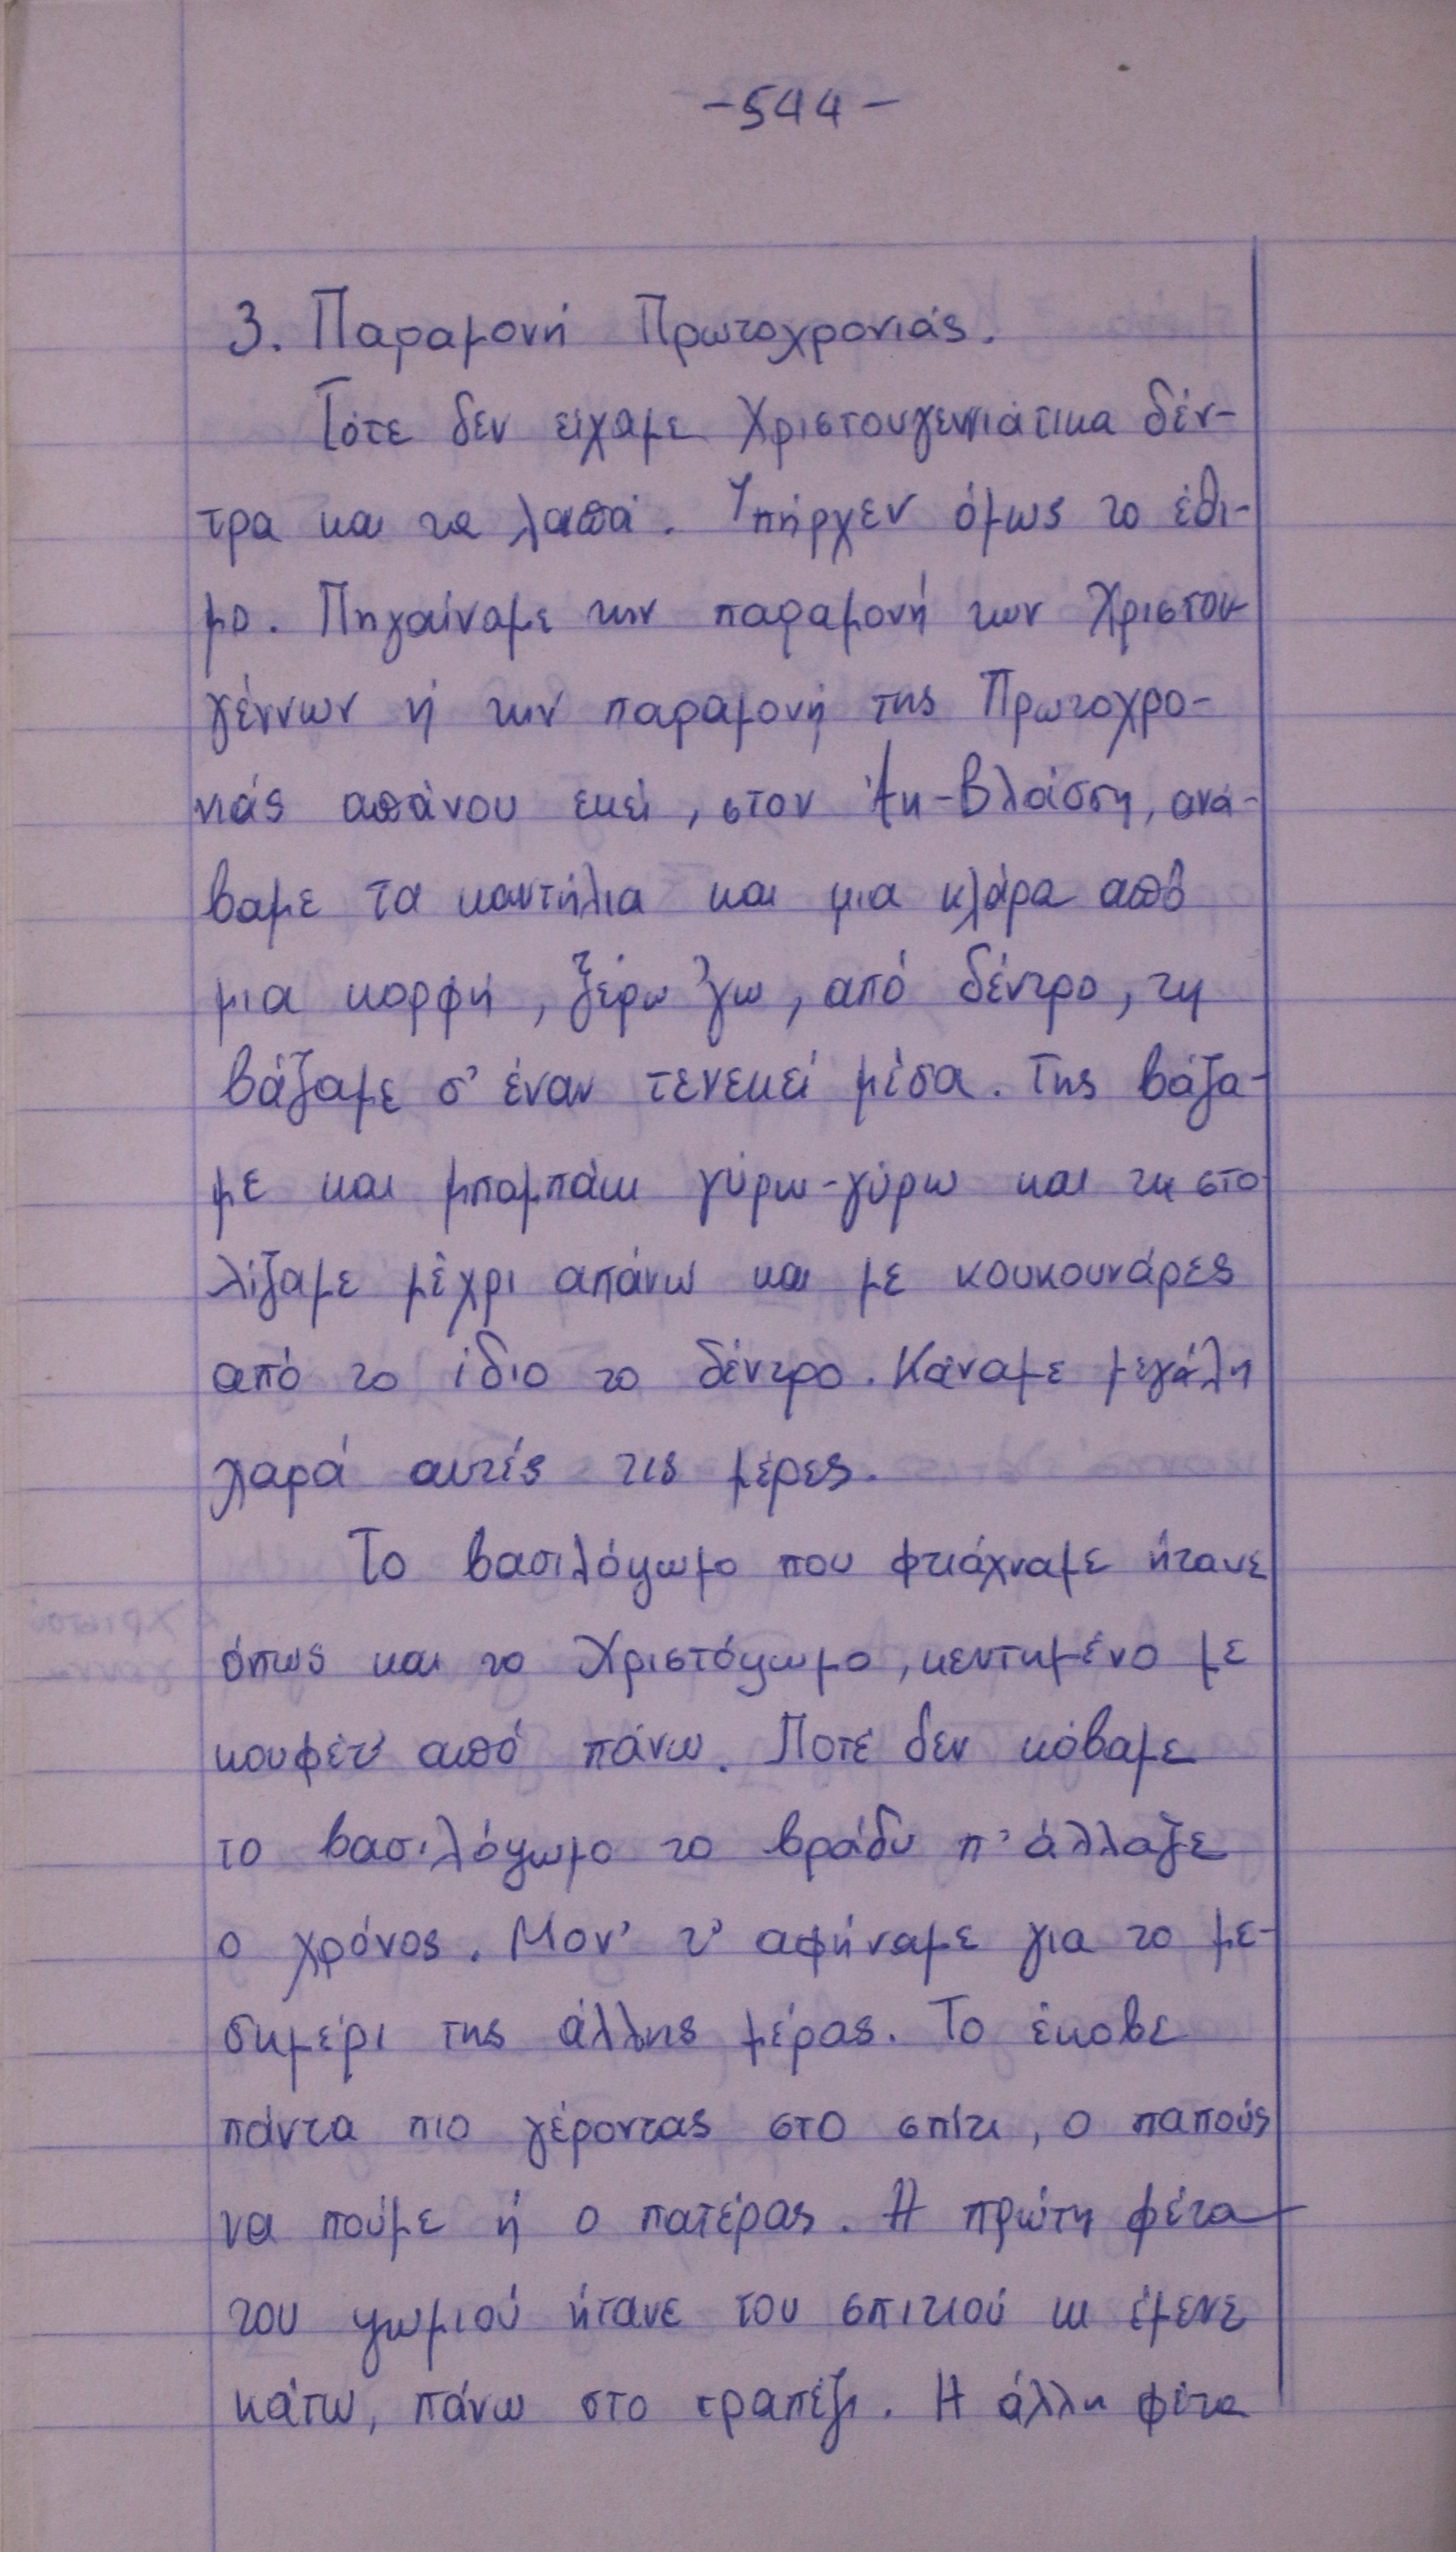 -544-
3. Παραμονή Πρωτοχρονιάς.
Τότε δεν είχαμε Χριστουγεννιάτικα δέν-
τρα και τα λαπά. Υπήρχεν όμως το έθι-
μο. Πηγαίναμε την παραμονή των Χριστου
γέννων ή την παραμονή της Πρωτοχρο-
νιάς απάνου εκεί, στον Άη-Βλάσση, ανά-
βαμε τα καντήλια και μια κλάρα από
μια κορφή, ξέρω 'γω, από δέντρο, τη
βάζαμε σ' έναν τενεκεί μέσα. Της βάζα-
με και μπαμπάκι γύρω-γύρω και τη στο
λίζαμε μέχρι απάνω και με κουκουνάρες
από το ίδιο το δέντρο. Κάναμε μεγάλη
χαρά αυτές τις μέρες.
Το βασιλόψωμο που φτιάχναμε ήτανε
όπως και το Χριστόψωμο, κεντημένο με
κουφέτ' από πάνω. Ποτέ δεν κόβαμε
το βασιλόψωμο το βράδυ π' άλλαζε
ο χρόνος. Μον' τ' αφήναμε για το με-
σημέρι της άλλης μέρας. Το έκοβε
πάντα πιο γέροντας στο σπίτι, ο παπούς
να πούμε ή ο πατέρας. Η πρώτη φέτα
του ψωμιού ήτανε του σπιτιού κι έμενε
κάτω, πάνω στο τραπέζι. Η άλλη φέτα